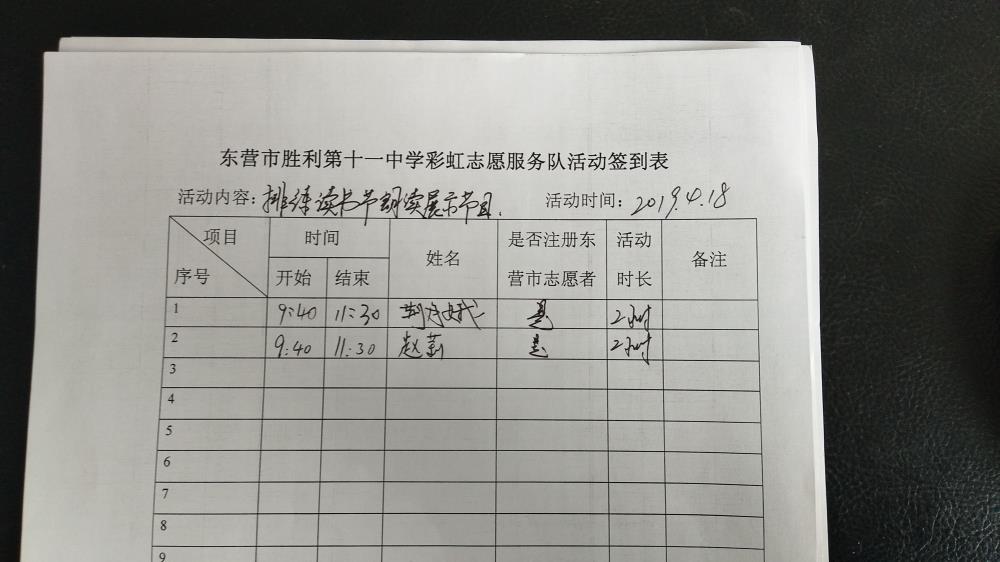 东营市胜利第十一中学彩虹志愿服务队活动签到表
活动内容：排练读书节朗读展示节目. 活动时间：2019.4.18
项目 时间 姓名 是否注册东 活动 备注
序号 开始 结束 营市志愿者 时长
1 9:40 11:30 是 2小时
2 9:40 11:30 赵 是 2小时
3
4
5
6
7
8
9